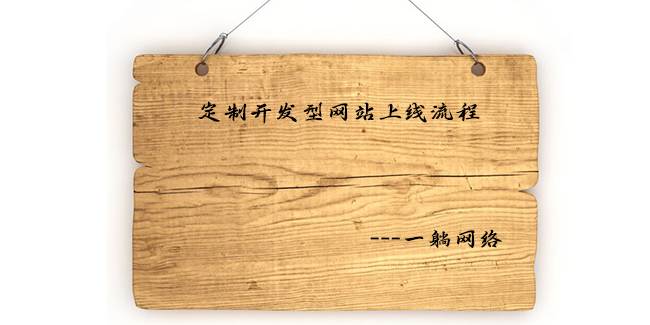 定制开发型网站上线流程
---一躺网络